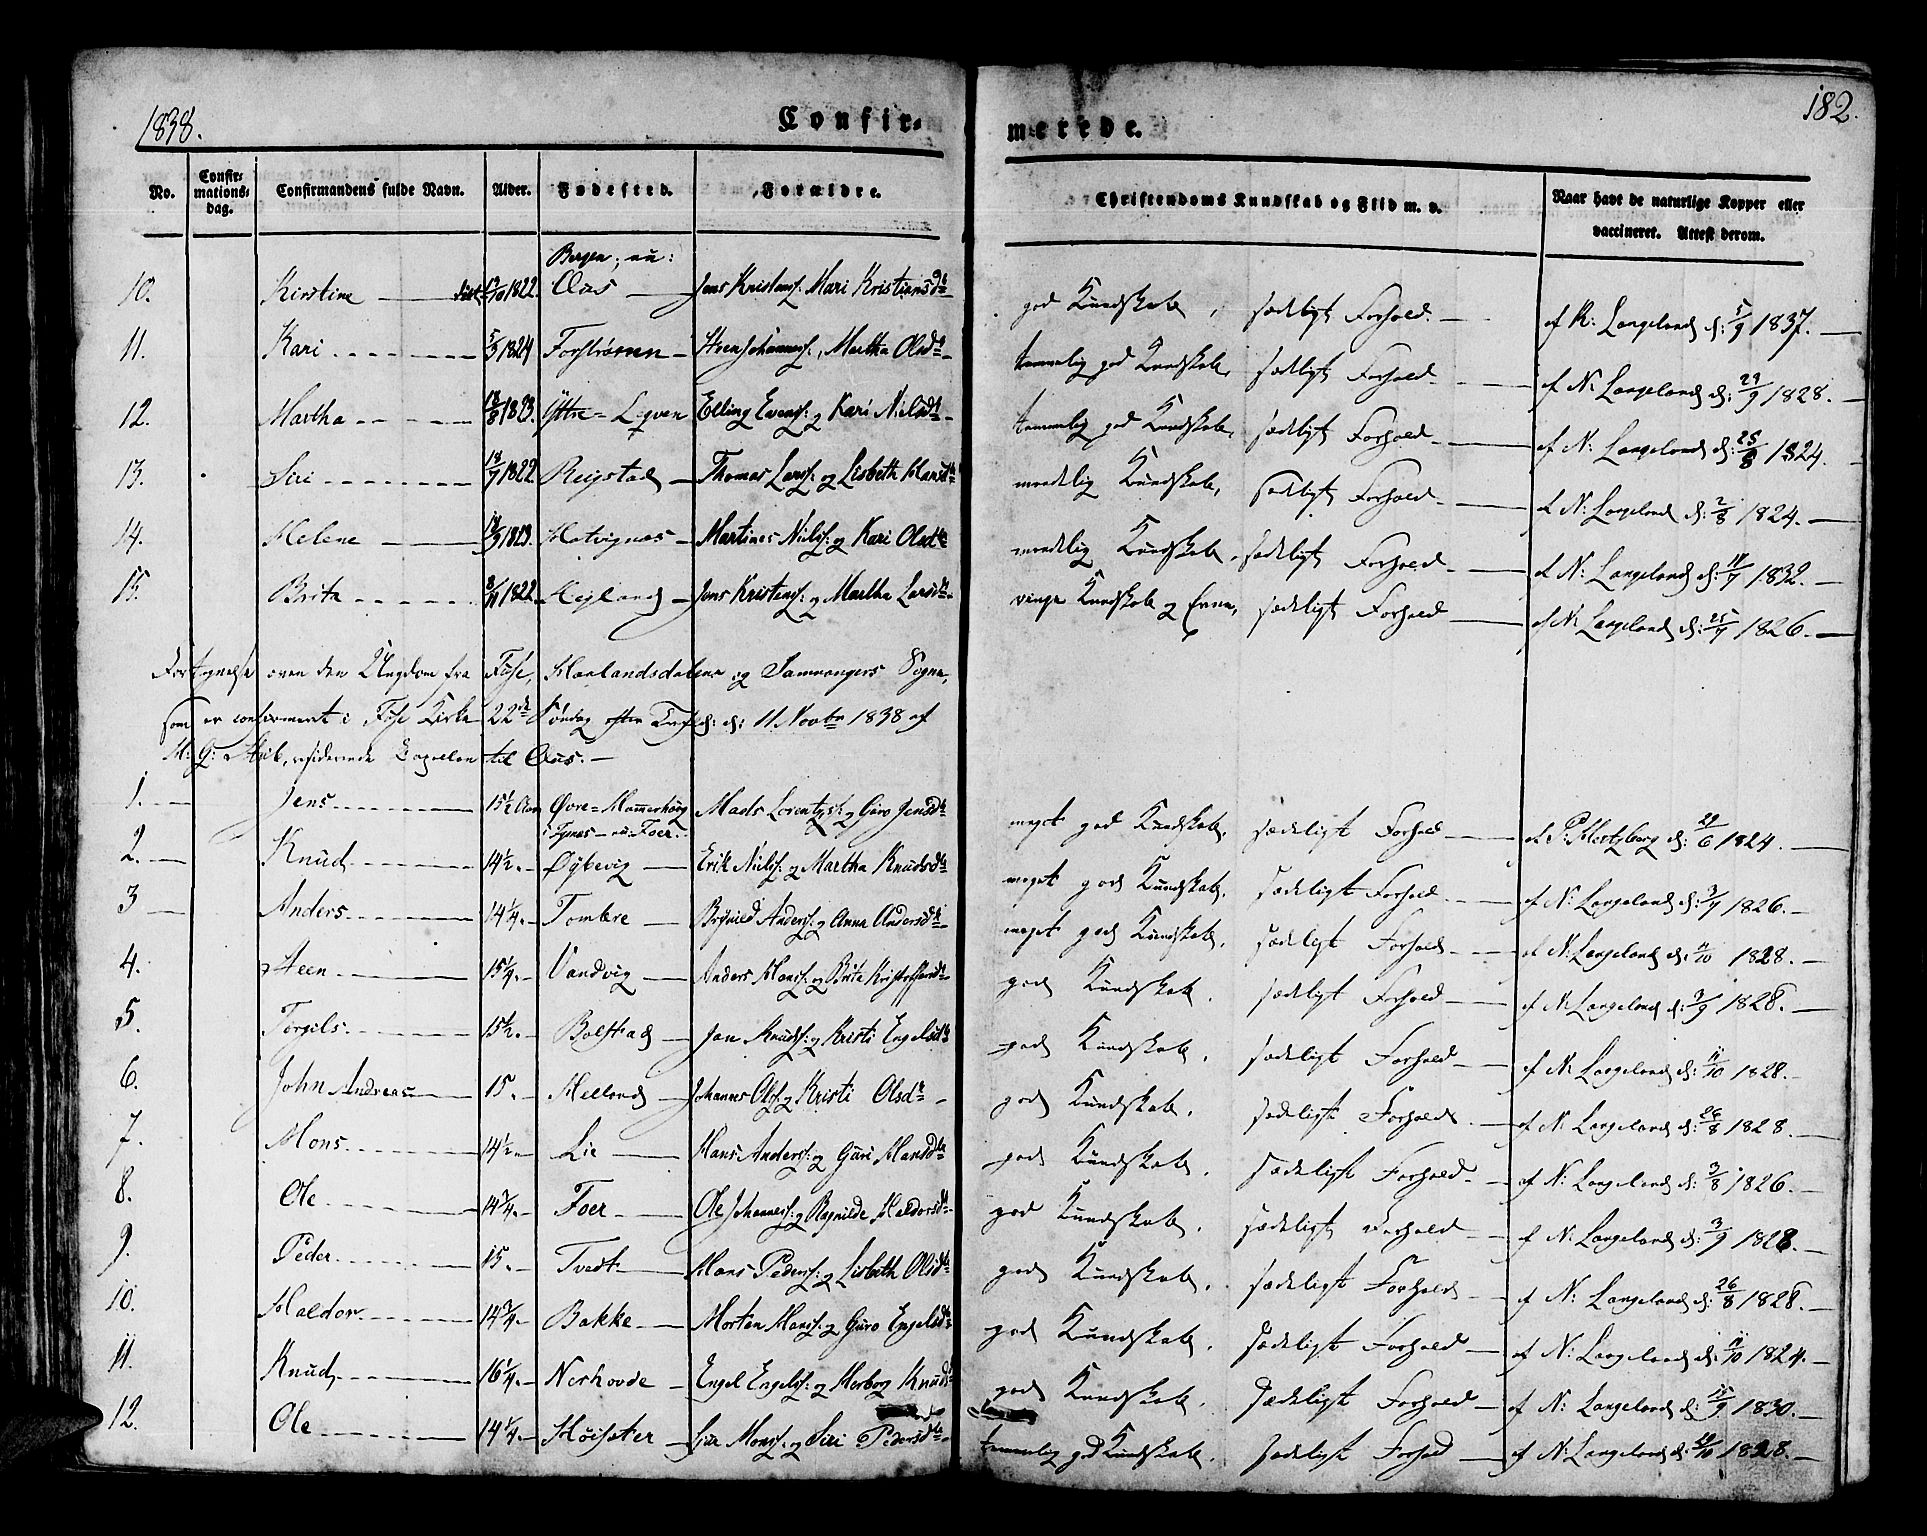 1838.
Confir=
merede.
182.
No. Confir=mations=dag. Confirmandens fulde Navn. Alder. Fødested. Forældre. Christendoms Kundskab og Flid m. v. Naar havt de naturlige Kopper eller vaccineret. Attest derom.
Bergen; nu:
10. Kirstine 1822. Oos Jens Kristens. Mari Kristiansdr god Kundskab, sædeligt Forhold. af R: Langeland d: 5/9 1837.
11. Kari 5/3 1824 Forstrønen Steen Johanness. Martha Olsdr temmelig god Kundskab, sædeligt Forhold. af N: Langeland d: 29/9 1828.
12. Martha 18/8 1823. Yttre=Lepven Elling Evens. og Kari Nielsdr temmelig god Kundskab, sædeligt Forhold. af N: Langeland d: 25/8 1824.
13. Siri 18/7 1822 Reigstad Thomas Larss. og Lisbeth Hansdr maadelig Kundskab, sædeligt Forhold. af N: Langeland d: 2/8 1824.
14. Helene 1823. Hatvignæs Martines Niels. og Kari Olsdr maadelig Kundskab, sædeligt Forhold. af N: Langeland d: 17/7 1832.
15. Brita 8/11 1822. Hegland Jens Kristens. og Martha Larsdr ringe Kundskab og Evne, sædeligt Forhold af N: Langeland d: 25/7 1826.
Fortegnelse over den Ungdom fra Fuse, Haalandsdalens og Samnangers Sogne,
som er confirmeret i Fuse Kirke 22de Søndag efter Trefd: d: 11 Novbr 1838 af
M: G: Stub, residerende Capellan til Oos.
1. Jens 15½ Aar Øvre=Hammerhoug Mads Lorentzs. og Guro Jensdr meget god Kundskab, sædeligt Forhold af P. Hertzberg d: 29/6 1824.
Tysnæs nu: Foer.
2. Knud 14½ Øykevig Erik Niels. og Martha Knudsdr meget god Kundskab, sædeligt Forhold. af N: Langeland d: 3/7 1826.
3 Anders 14¼ Tombre Brynild Anders. og Anna Andersdr meget god Kundskab, sædeligt Forhold af N: Langeland d: 11/10 1828.
4. Steen 15¼ Vandvig Anders Hans. og Brita Kristoffersdr god Kundskab, sædeligt Forhold af N: Langeland d: 3/9 1828.
5. Torgils 15½ Bolstad Jon Knuds. og Kristi Engelsdr god Kundskab, sædeligt Forhold af N: Langeland d: 11/10 1828.
6. John Andreas 15. Helland Johannes Ols. og Kristi Olsdr god Kundskab, sædeligt Forhold. af N: Langeland d: 26/8 1828.
7. Mons 14½ Lie Hans Anders. og Guri Hansdr god Kundskab, sædeligt Forhold. af N: Langeland d: 3/8 1826.
8. Ole 14¾ Foer Ole Johanness. og Ragnilde Haldorsdr god Kundskab, sædeligt Forhold. af N: Langeland d: 3/9 1828.
9. Peder 15. Tvedt Hans Peders. og Lisbeth Olsdr god Kundskab, sædeligt Forhold af N: Langeland d: 26/8 1828.
10. Haldor 14¾ Bakke Morten Hans. og Guro Engelsdr god Kundskab, sædeligt Forhold af N: Langeland d: 11/10 1824.
11. Knud 16¼ Nerhovde Engel Engels. og Herborg Knudsdr god Kundskab, sædeligt Forhold af N: Langeland d: 15/9 1830.
12. Ole 14¼ Høisæter Mons. og Siri Pedersdr temmelig god Kundskab, sædeligt Forhold af N: Langeland d: 1828.